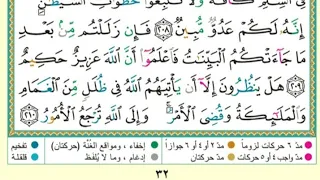 فِي ٱلسِّلۡمِ كَآفَّةٗ وَلَا تَتَّبِعُواْ خُطُوَٰتِ ٱلشَّيۡطَٰنِۚ
إِنَّهُۥ لَكُمۡ عَدُوّٞ مُّبِينٞ ٢٠٨ فَإِن زَلَلۡتُم مِّنۢ بَعۡدِ
مَا جَآءَتۡكُمُ ٱلۡبَيِّنَٰتُ فَٱعۡلَمُوٓاْ أَنَّ ٱللَّهَ عَزِيزٌ حَكِيمٌ ٢٠٩
هَلۡ يَنظُرُونَ إِلَّآ أَن يَأۡتِيَهُمُ ٱللَّهُ فِي ظُلَلٖ مِّنَ ٱلۡغَمَامِ
وَٱلۡمَلَٰٓئِكَةُ وَقُضِيَ ٱلۡأَمۡرُۚ وَإِلَى ٱللَّهِ تُرۡجَعُ ٱلۡأُمُورُ ٢١٠
مدّ ٦ حركات لزوماً مدّ ٢ أو ٤ أو ٦ جوازاً إخفاء، ومواقع الغُنَّة (حركتان) تفخيم
مدّ واجب ٤ أو ٥ حركات مدّ حركتان إدغام، وما لا يُلفَظ قلقلة
٣٢